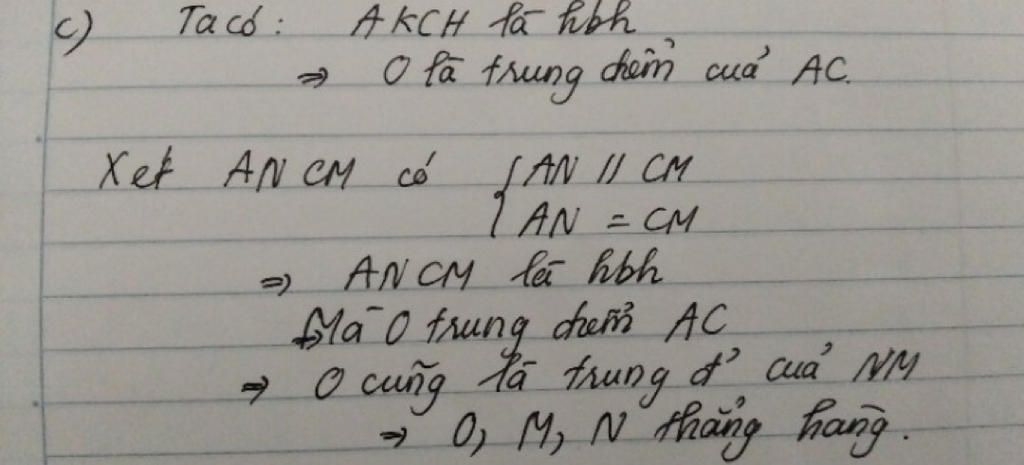 c) Ta có: AKCH là hbh
⇒ O là trung điểm cuả AC.
Xét ANCM có { AN // CM
AN = CM
⇒ ANCM là hbh
Mà O trung điểm AC
⇒ O cũng là trung đ' cuả NM
⇒ O, M, N thẳng hàng.